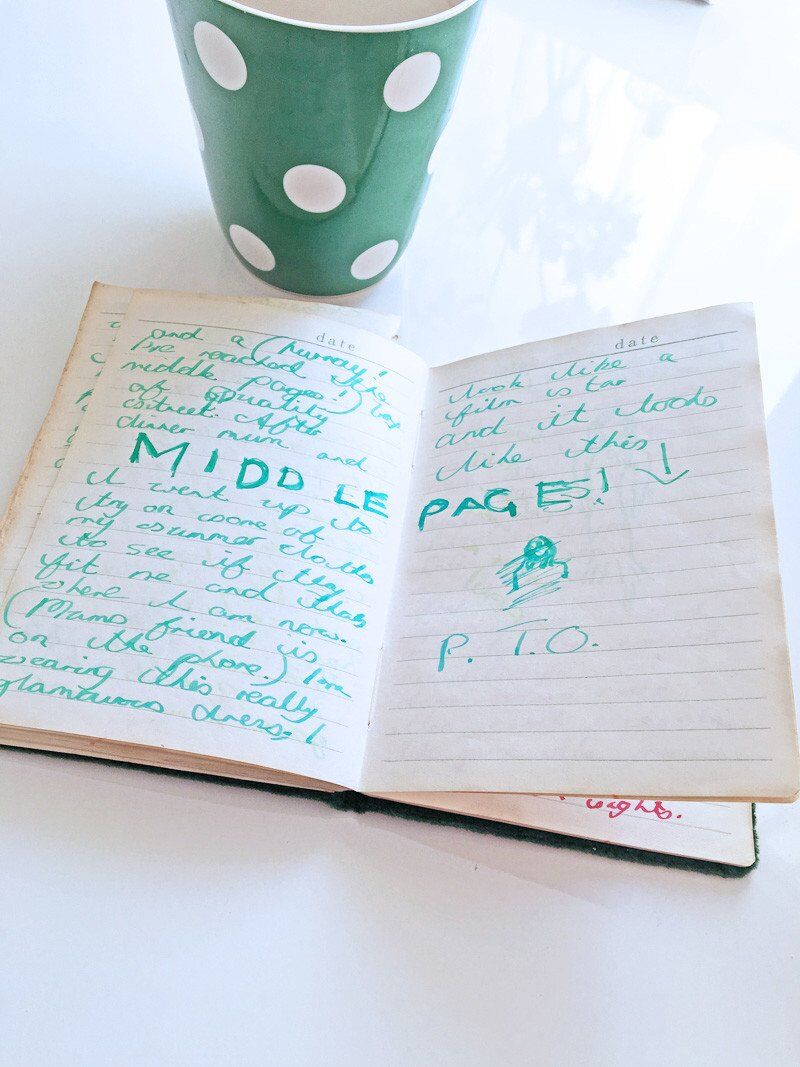 date
and a (hurray!
I've reached the
middle pages!) box
of quality
street. After
dinner mum and
MIDDLE
I went up to
try on some of
my summer clothes
to see if they
fit me and thats
where I am now.
(Mams friend is
on the phone.) I'm
wearing this really
glamourous dress. I
date
look like a
film star
and it looks
like this
PAGES!
P.T.O.